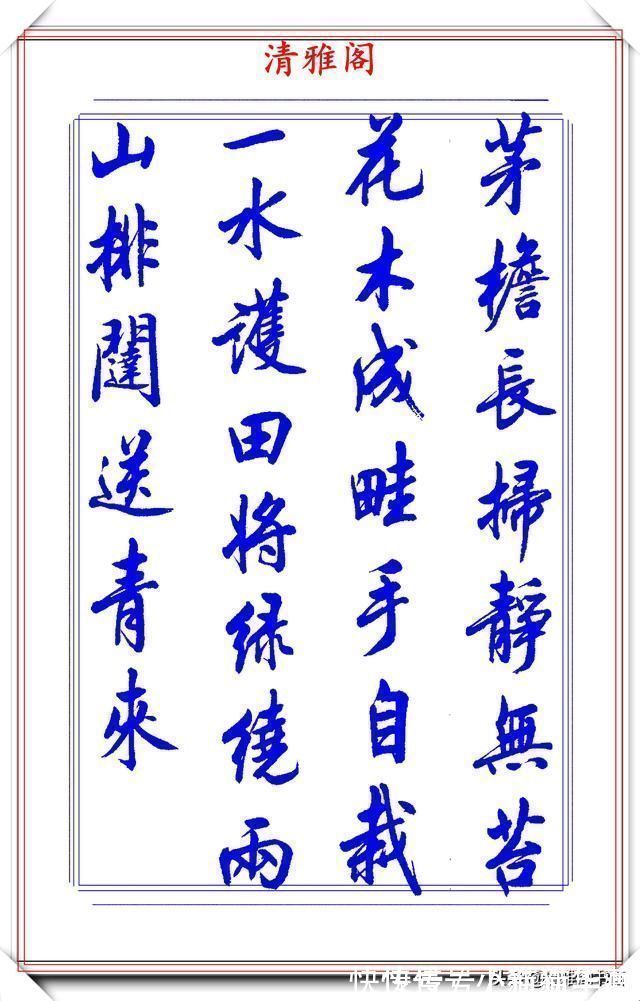 清雅阁
茅檐長掃靜無苔
花木成畦手自栽
一水護田將绿繞兩
山排闥送青來